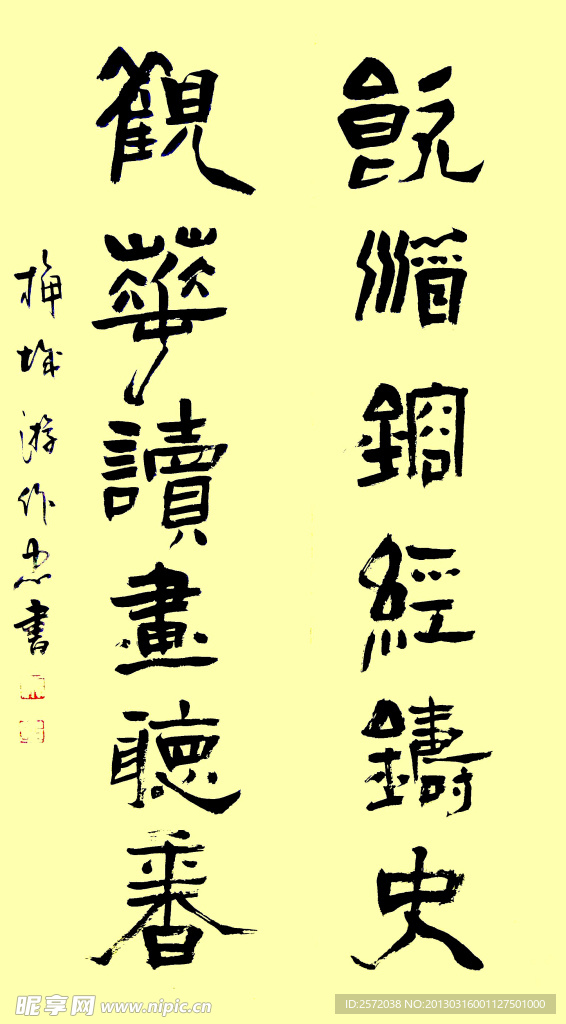 飲酒鎔經鑄史
觀華讀畫聽香
梅城游作忠書
昵享网 www.nipic.cn
ID:2572038 NO:20130316001127501000